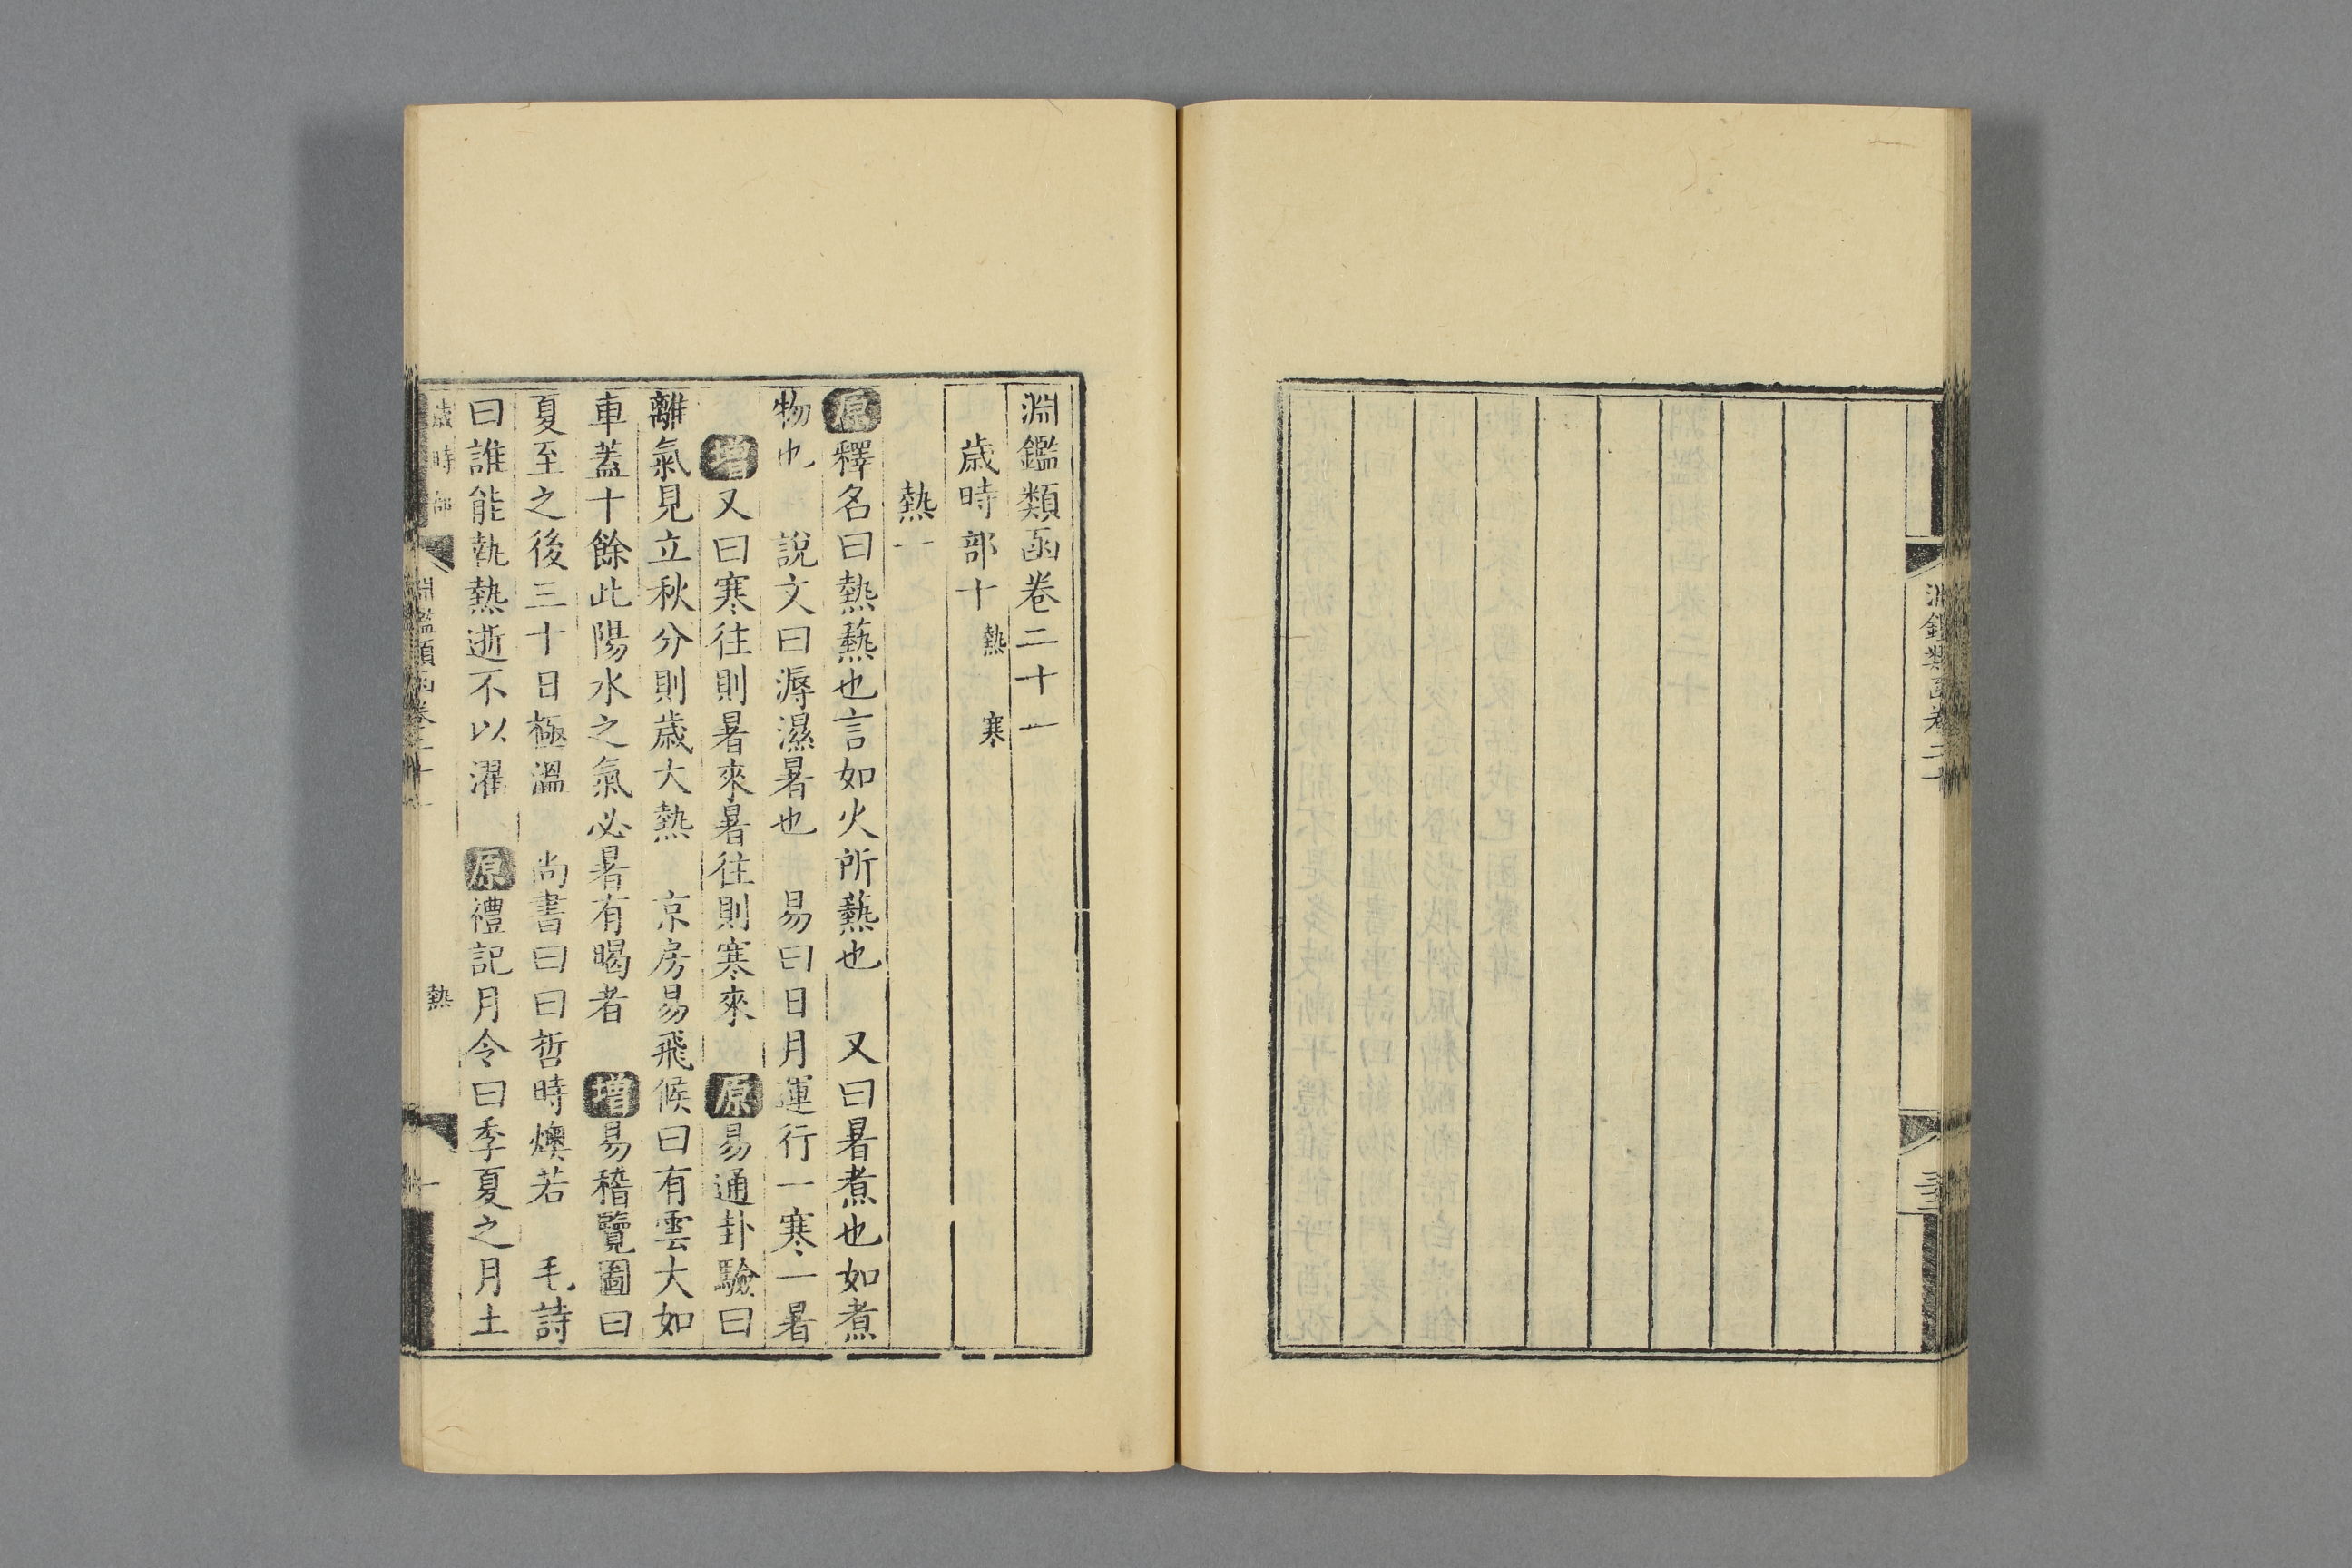 淵鑑類函卷二十
淵鑑類函卷二十一
歲時部十 熱 寒
熱一
原釋名曰熱爇也言如火所爇也 又曰暑煮也如煮
物也 說文曰溽濕暑也 易曰日月運行一寒一暑
增又曰寒往則暑來暑往則寒來 原易通卦驗曰
離氣見立秋分則歲大熱 京房易飛候曰有雲大如
車蓋十餘此陽水之氣必暑有暍者 增易稽覽圖曰
夏至之後三十日極溫 尚書曰曰哲時燠若 毛詩
曰誰能執熱逝不以濯 原禮記月令曰季夏之月土
歲時部
淵鑑類函卷二十一
熱
一